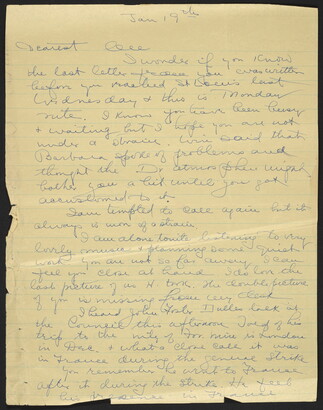 Jan 19th
Dearest
I wonder if you know
the last letter from you was written
before you reached St Louis last
Wednesday & this is Monday
nite. I know you have been busy
& waiting but I hope you are not
under a strain. said that
Barbara spoke of problems and
thought the Dr atmosphere might
bother you a bit until you got
accustomed to it.
I am tempted to call again but it
always is won of a strain.
I am alone tonite listening to very
lovely music & planning some quiet
work. You are not so far away. I can
feel you close at hand. I do love the
last picture of us H. took. The double picture
of you is missing from my
I heard John Foster Dulles talk at
the Council this afternoon. Told of his
trip to the mtg of For. Mins in London
in Dec. & what a close call it was
in France during the general strike
You remember he went to France
after it during the strike. He feels
in France